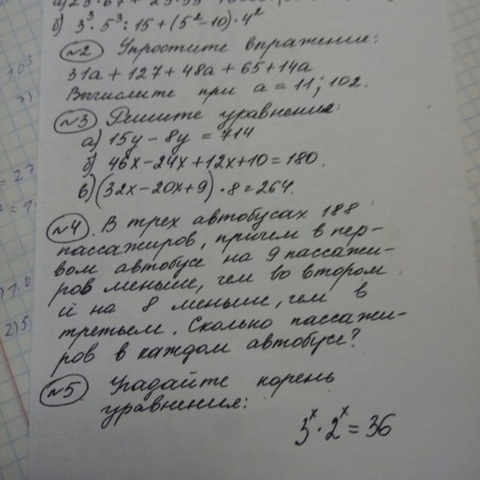 б) 3³·5³:15+(5²-10)·4²
№2 Упростите выражение:
31a+127+48a+65+14a
Вычислите при a=11; 102.
№3 Решите уравнения:
а) 15y-8y=714
б) 46x-24x+12x+10=180.
в) (32x-20x+9)·8=264.
№4. В трех автобусах 188
пассажиров, причем в пер-
вом автобусе на 9 пассажи-
ров меньше, чем во втором
и на 8 меньше, чем в
третьем. Сколько пассажи-
ров в каждом автобусе?
№5 Угадайте корень
уравнения:
3ˣ·2ˣ=36